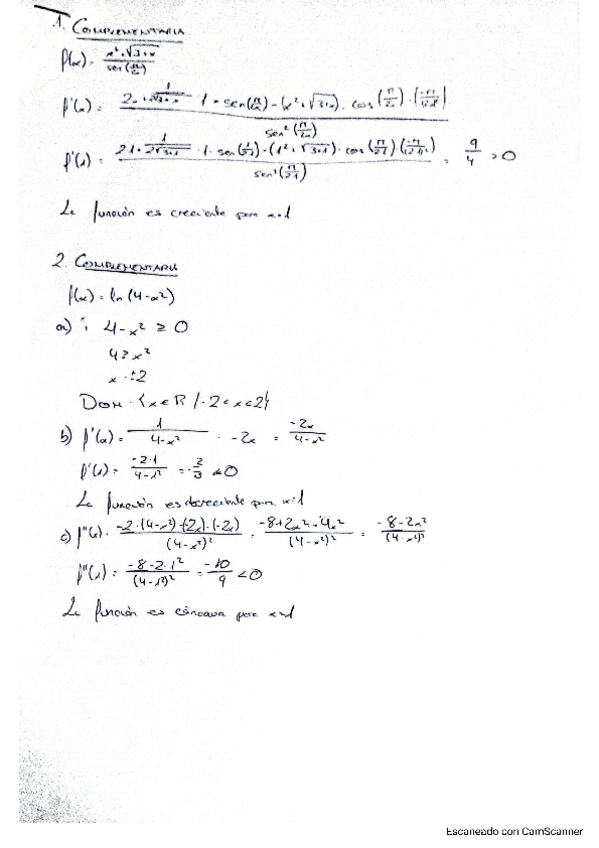 1. COMPLEMENTARIA
f(x) = (x² + √(3+x)) / sen(π/2x)
f'(x) = (2x + 1/(2√(3+x)) · 1 · sen(π/2x) - (x² + √(3+x)) · cos(π/2x) · (-π/(2x)²)) / sen²(π/2x)
f'(1) = (2·1 + 1/(2√(3+1)) · 1 · sen(π/2·1) - (1² + √(3+1)) · cos(π/2·1) · (-π/(2·1)²)) / sen²(π/2·1) = 9/4 > 0
La función es creciente para x=1
2. COMPLEMENTARIA
f(x) = ln(4-x²)
a) 4-x² ≥ 0
4 ≥ x²
x = ±2
DOM = {x ∈ R / -2 < x < 2}
b) f'(x) = 1/(4-x²) · -2x = -2x/(4-x²)
f'(1) = -2·1/(4-1²) = -2/3 < 0
La función es decreciente para x=1
c) f''(x) = (-2·(4-x²) - (-2x)·(-2x))/(4-x²)² = (-8+2x²-4x²)/(4-x²)² = (-8-2x²)/(4-x²)²
f''(1) = (-8-2·1²)/(4-1²)² = -10/9 < 0
La función es cóncava para x=1
Escaneado con CamScanner